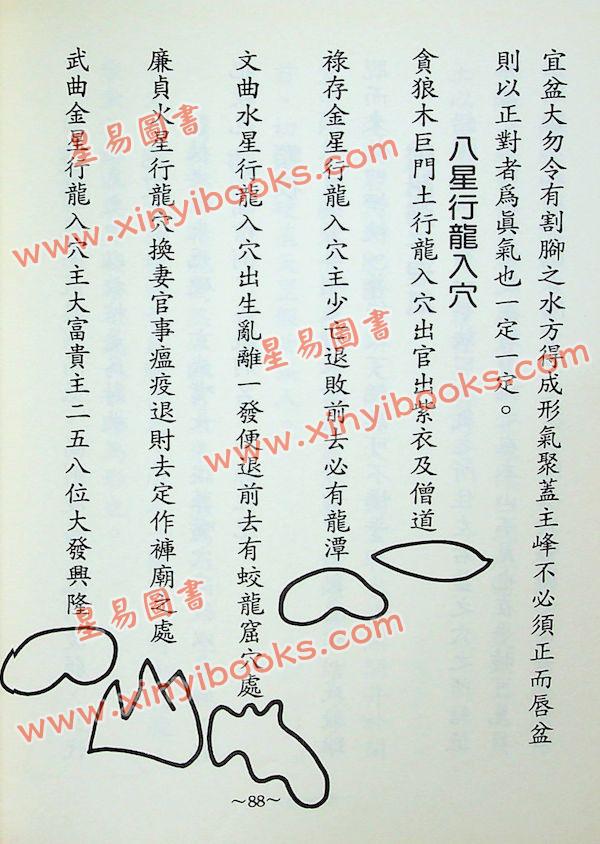 宜盆大勿令有割腳之水方得成形氣聚蓋主峰不必須正而唇盆
則以正對者爲眞氣也一定一定。
八星行龍入穴
貪狼木巨門土行龍入穴出官出紫衣及僧道
祿存金星行龍入穴主少亡退敗前去必有龍潭
文曲水星行龍入穴出生亂離一發便退前去有蛟龍窟穴處
廉貞火星行龍穴換妻官事瘟疫退財去定作褲廟之處
武曲金星行龍入穴主大富貴主二五八位大發興隆
~88~
星易圖書
www.xinyibooks.com
星易圖書
www.xinyibooks.com
星易圖書
www.xinyibooks.com